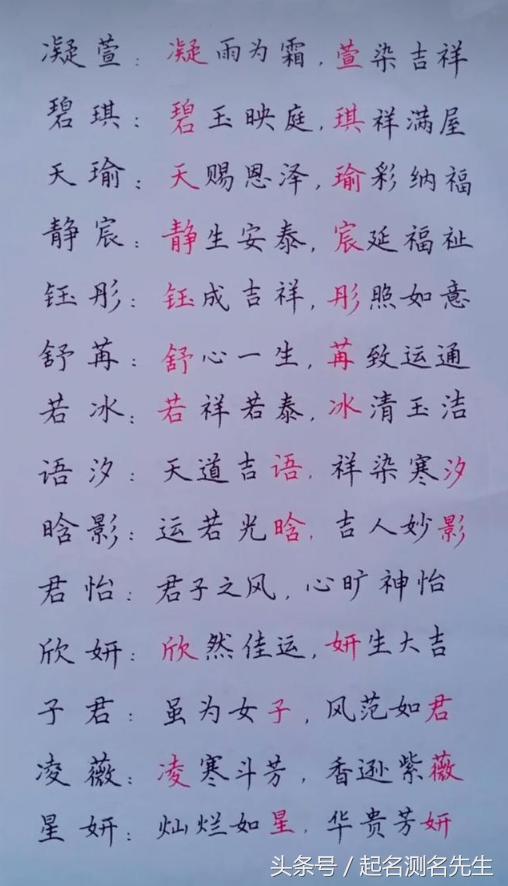 凝萱：凝雨为霜，萱染吉祥
碧琪：碧玉映庭，琪祥满屋
天瑜：天赐恩泽，瑜彩纳福
静宸：静生安泰，宸延福祉
钰彤：钰成吉祥，彤照如意
舒苒：舒心一生，苒致运通
若冰：若祥若泰，冰清玉洁
语汐：天道吉语，祥染寒汐
晗影：运若光晗，吉人妙影
君怡：君子之风，心旷神怡
欣妍：欣然佳运，妍生大吉
子君：虽为女子，风范如君
凌薇：凌寒斗芳，香逊紫薇
星妍：灿烂如星，华贵芳妍
头条号/起名测名先生